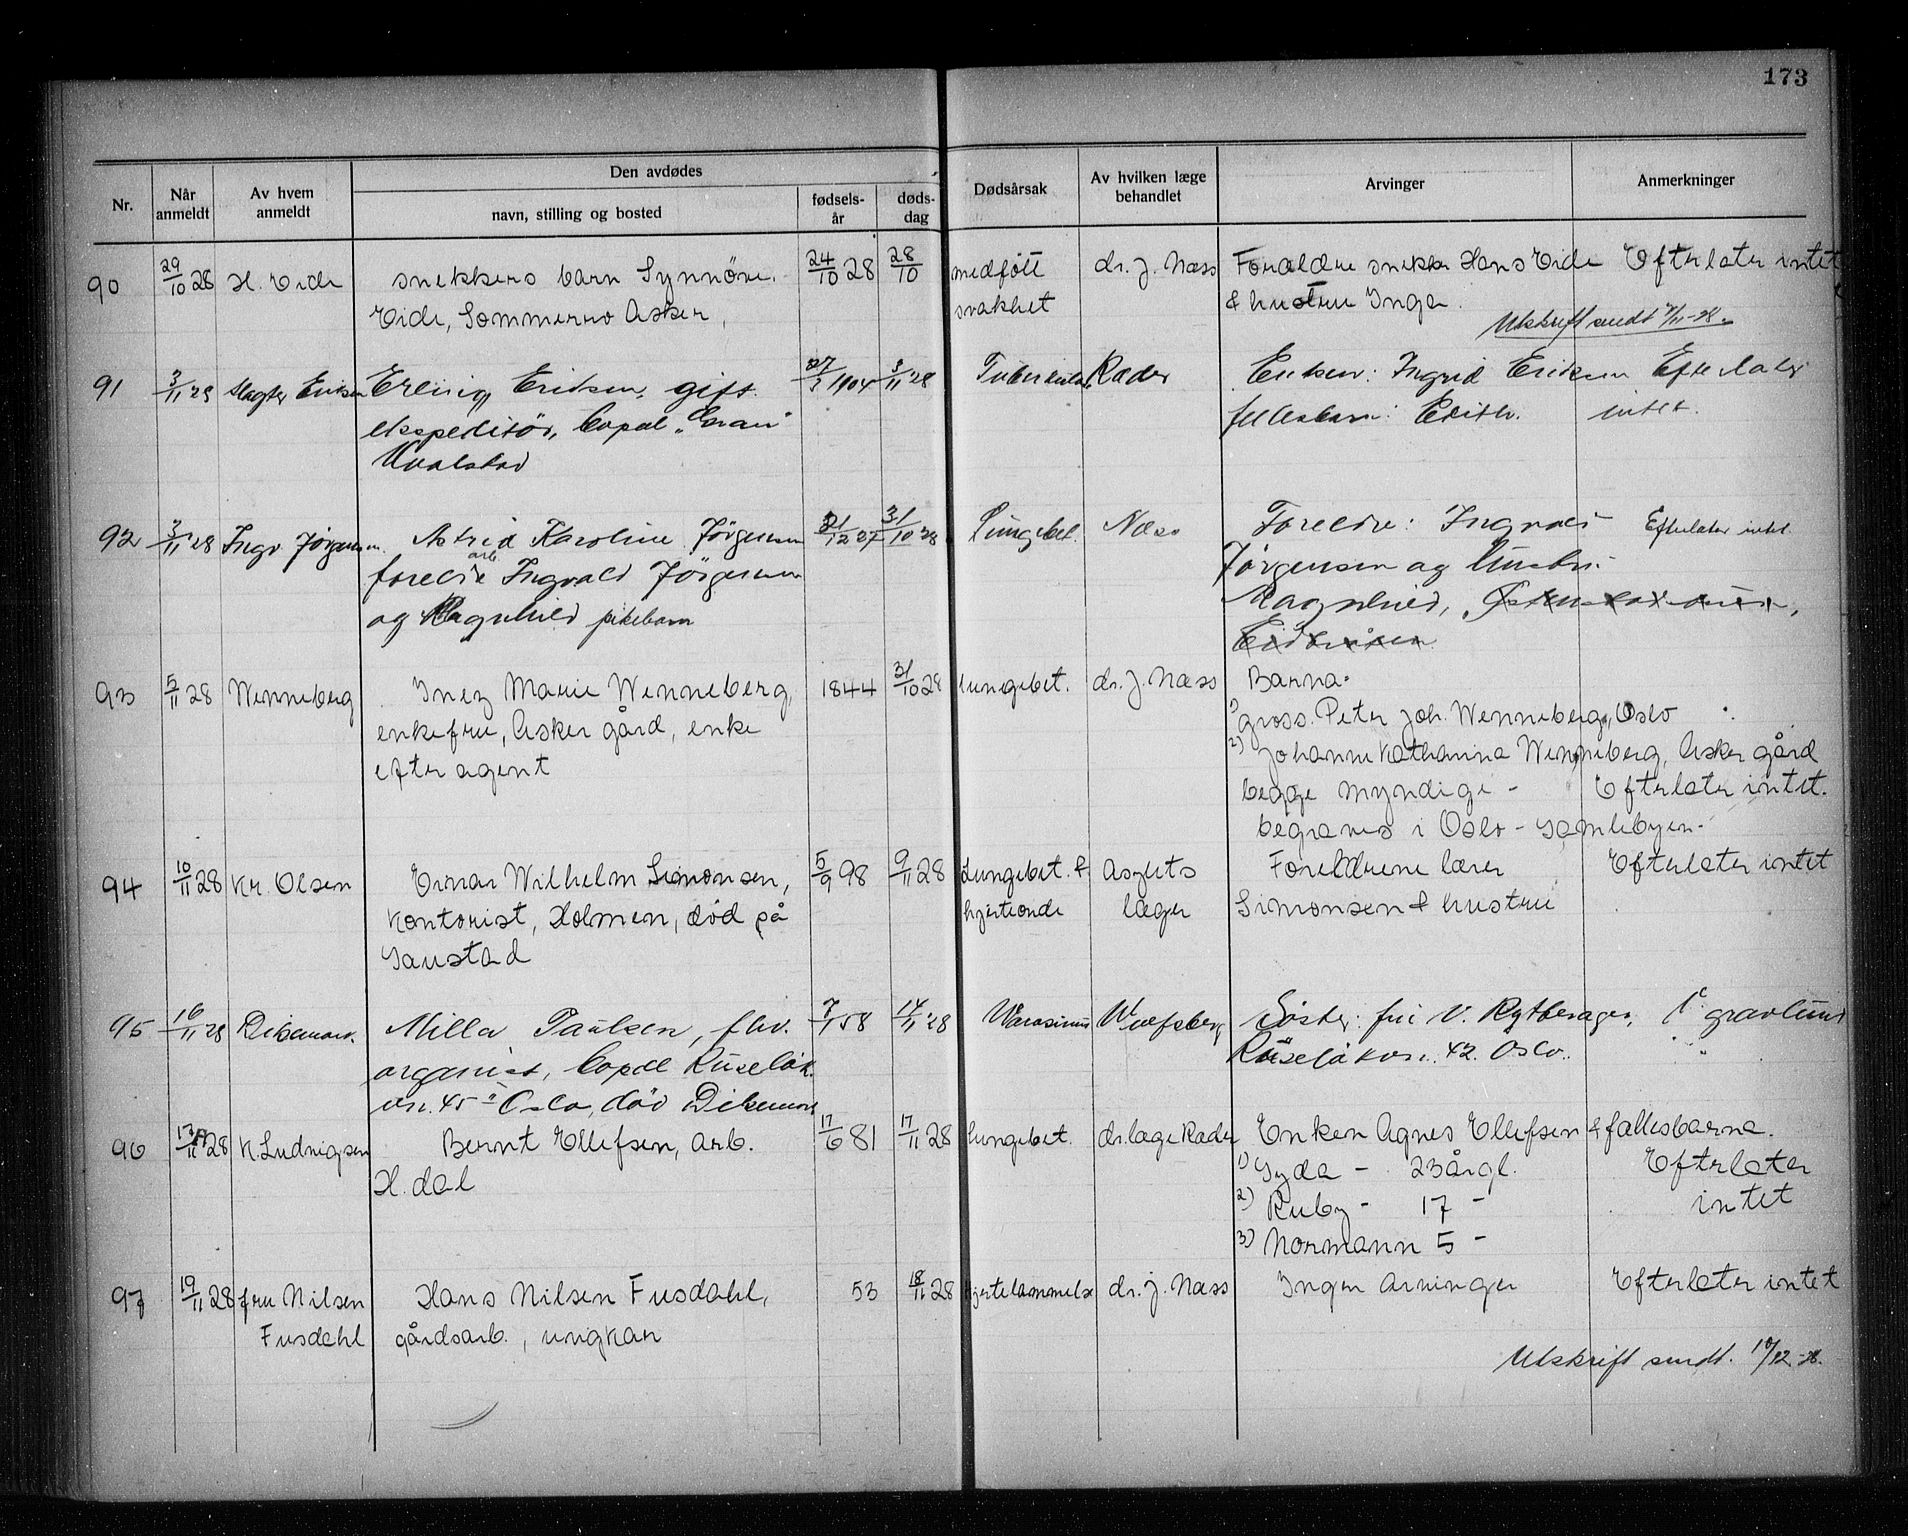 173
Nr.
Når anmeldt
Av hvem anmeldt
Den avdødes
navn, stilling og bosted
fødsels-år
døds-dag
Dødsårsak
Av hvilken læge behandlet
Arvinger
Anmerkninger
90 29/10 28 H. Eide snekkers barn Synnöve 24/10 28 28/10 medføtt dr. J. Næss Forældre snekk. Hans Eide Efterlater intet
Eide, Sommerro Asker, svakhet & hustru Inger.
Utskrift sendt 7/11-28.
91 3/11 28 Slagter Eriksen Erling Eriksen, gift 1904 3/11 28 Tuberkulos Rader Enken: Ingrid Eriksen Efterlater
ekspeditör, bopæl "Gran" fellesbarn: Edith. intet.
Hvalstad
92 3/11 28 Ingv Jørgensen Astrid Karoline Jørgensen 21/12 27 31/10 28 Lungebet. Næss Foreldre: Ingvald Efterlater intet
foreldre arb. Ingvald Jörgensen Jørgensen og hustru
og Ragnhild pikebarn Ragnhild,
93 5/11 28 Wenneberg Inez Marie Wenneberg, 1844 31/10 28 lungebet. dr. J. Næss Barna:
enkefru, Asker gård, enke 1) gross. Peter Joh. Wenneberg, Oslo
efter agent 2) Johanne Katharina Wenneberg, Asker gård
begge myndige - Efterlater intet.
begraves i Oslo - Gamlebyen -
94 10/11 28 Kr. Olsen Einar Wilhelm Simonsen, 5/9 98 9/11 28 Lungebet. & Asylets Foreldrene lærer Efterlater intet
kontorist, Holmen, död på hjerteonde læger Simonsen & hustru
Gaustad
95 16/11 28 Dikemark Milla Paulsen, fhv. 7/1 58 14/11 28 Marasmus Wulfsberg Söster: fru V. Rytterager,
organist, bopæl Ruselök. Ruselökvn. 42. Oslo.
vn. 45 Oslo, död Dikemark
96 17/11 28 K. Ludvigsen Bernt Ellefsen, arb. 17/6 81 17/11 28 lungebet. dr. læge Rader Enken Agnes Ellefsen & fællesbarna.
H. dal 1) Gyda - 23 årgl. Efterlater
2) Ruby - 17 - intet
3) Normann 5 -
97 19/11 28 fru Nilsen Hans Nilsen Fusdahl, 53 18/11 28 hjertelammelse dr. J. Næss Ingen arvinger Efterlater intet
Fusdahl gårdsarb., ungkar
Utskrift sendt. 10/12-28.